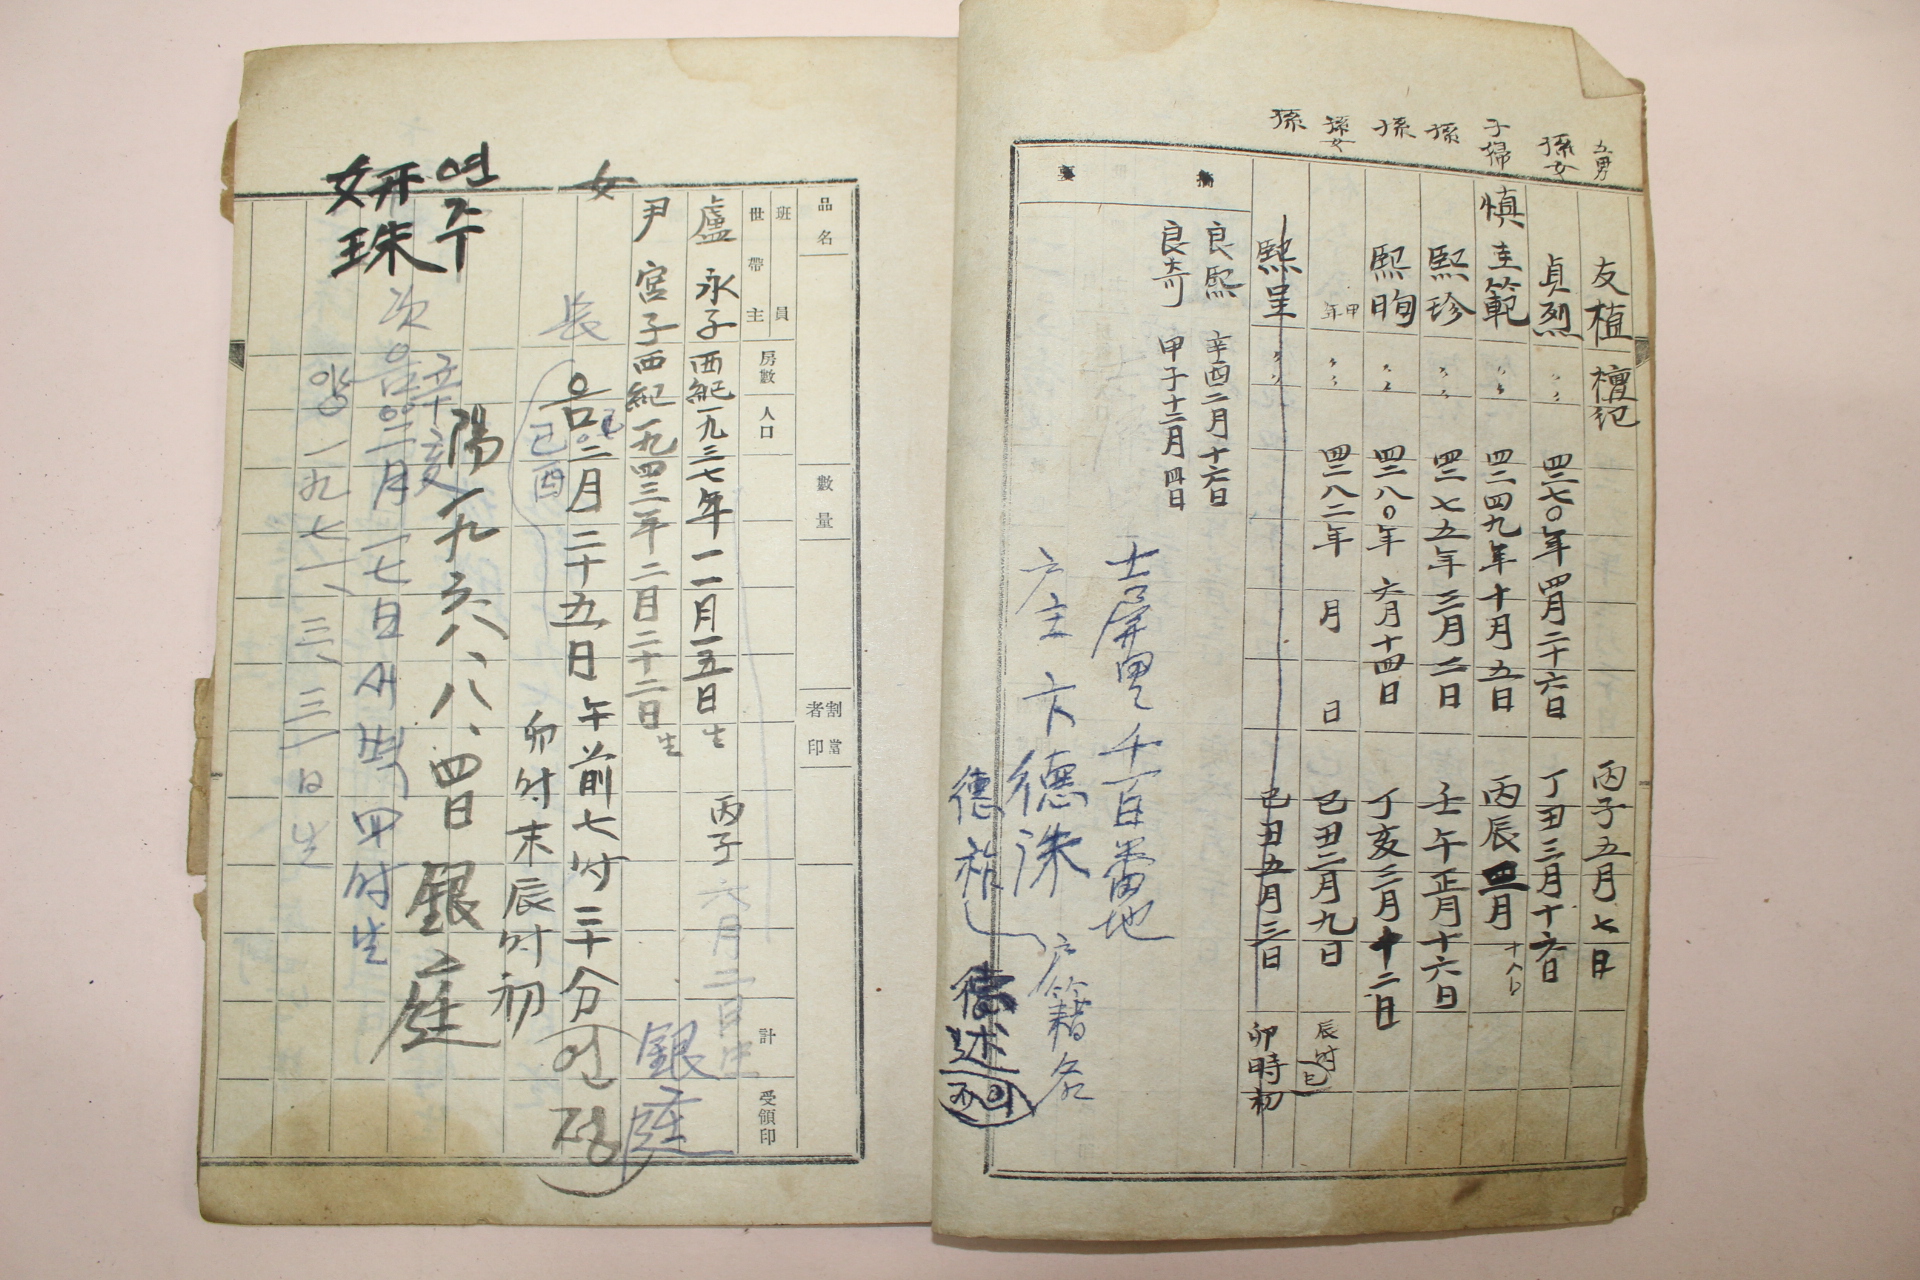 五男 友植 檀紀 丙子五月七日
孫女 貞烈 〃 四二七〇年四月二十六日 丁丑三月十六日
子婦 慎圭範 〃 四二四九年十月五日 丙辰四月十八日
孫 熙珍 〃 四二七五年三月二日 壬午正月十六日
孫 熙昫 〃 四二八〇年六月十四日 丁亥三月十二日
孫女 甲年 〃 四二八二年 月 日 己丑二月九日 辰时
孫 熙呈 〃 己丑五月三日 卯時初
摘要
良熙 辛酉二月十六日
良奇 甲子十二月四日
士屏里 千百番地
户主 卞德洙 户籍名
德祚
德述
品名 數量 割當者印
班員 世帶主 房數 人口 計 受領印
盧永子 西紀一九三七年一一月一五日生 丙子 六月二日生
尹宮子 西紀一九四三年二月二十二日生 銀庭
女 長 음 二月二十五日 午前七时三十分 은정
己酉 卯时末辰时初
陽一九六八、八、四日 銀庭
연주
妍珠
次 음 二月一七日 새벽 四时生
양 一九七一、三、三一日生